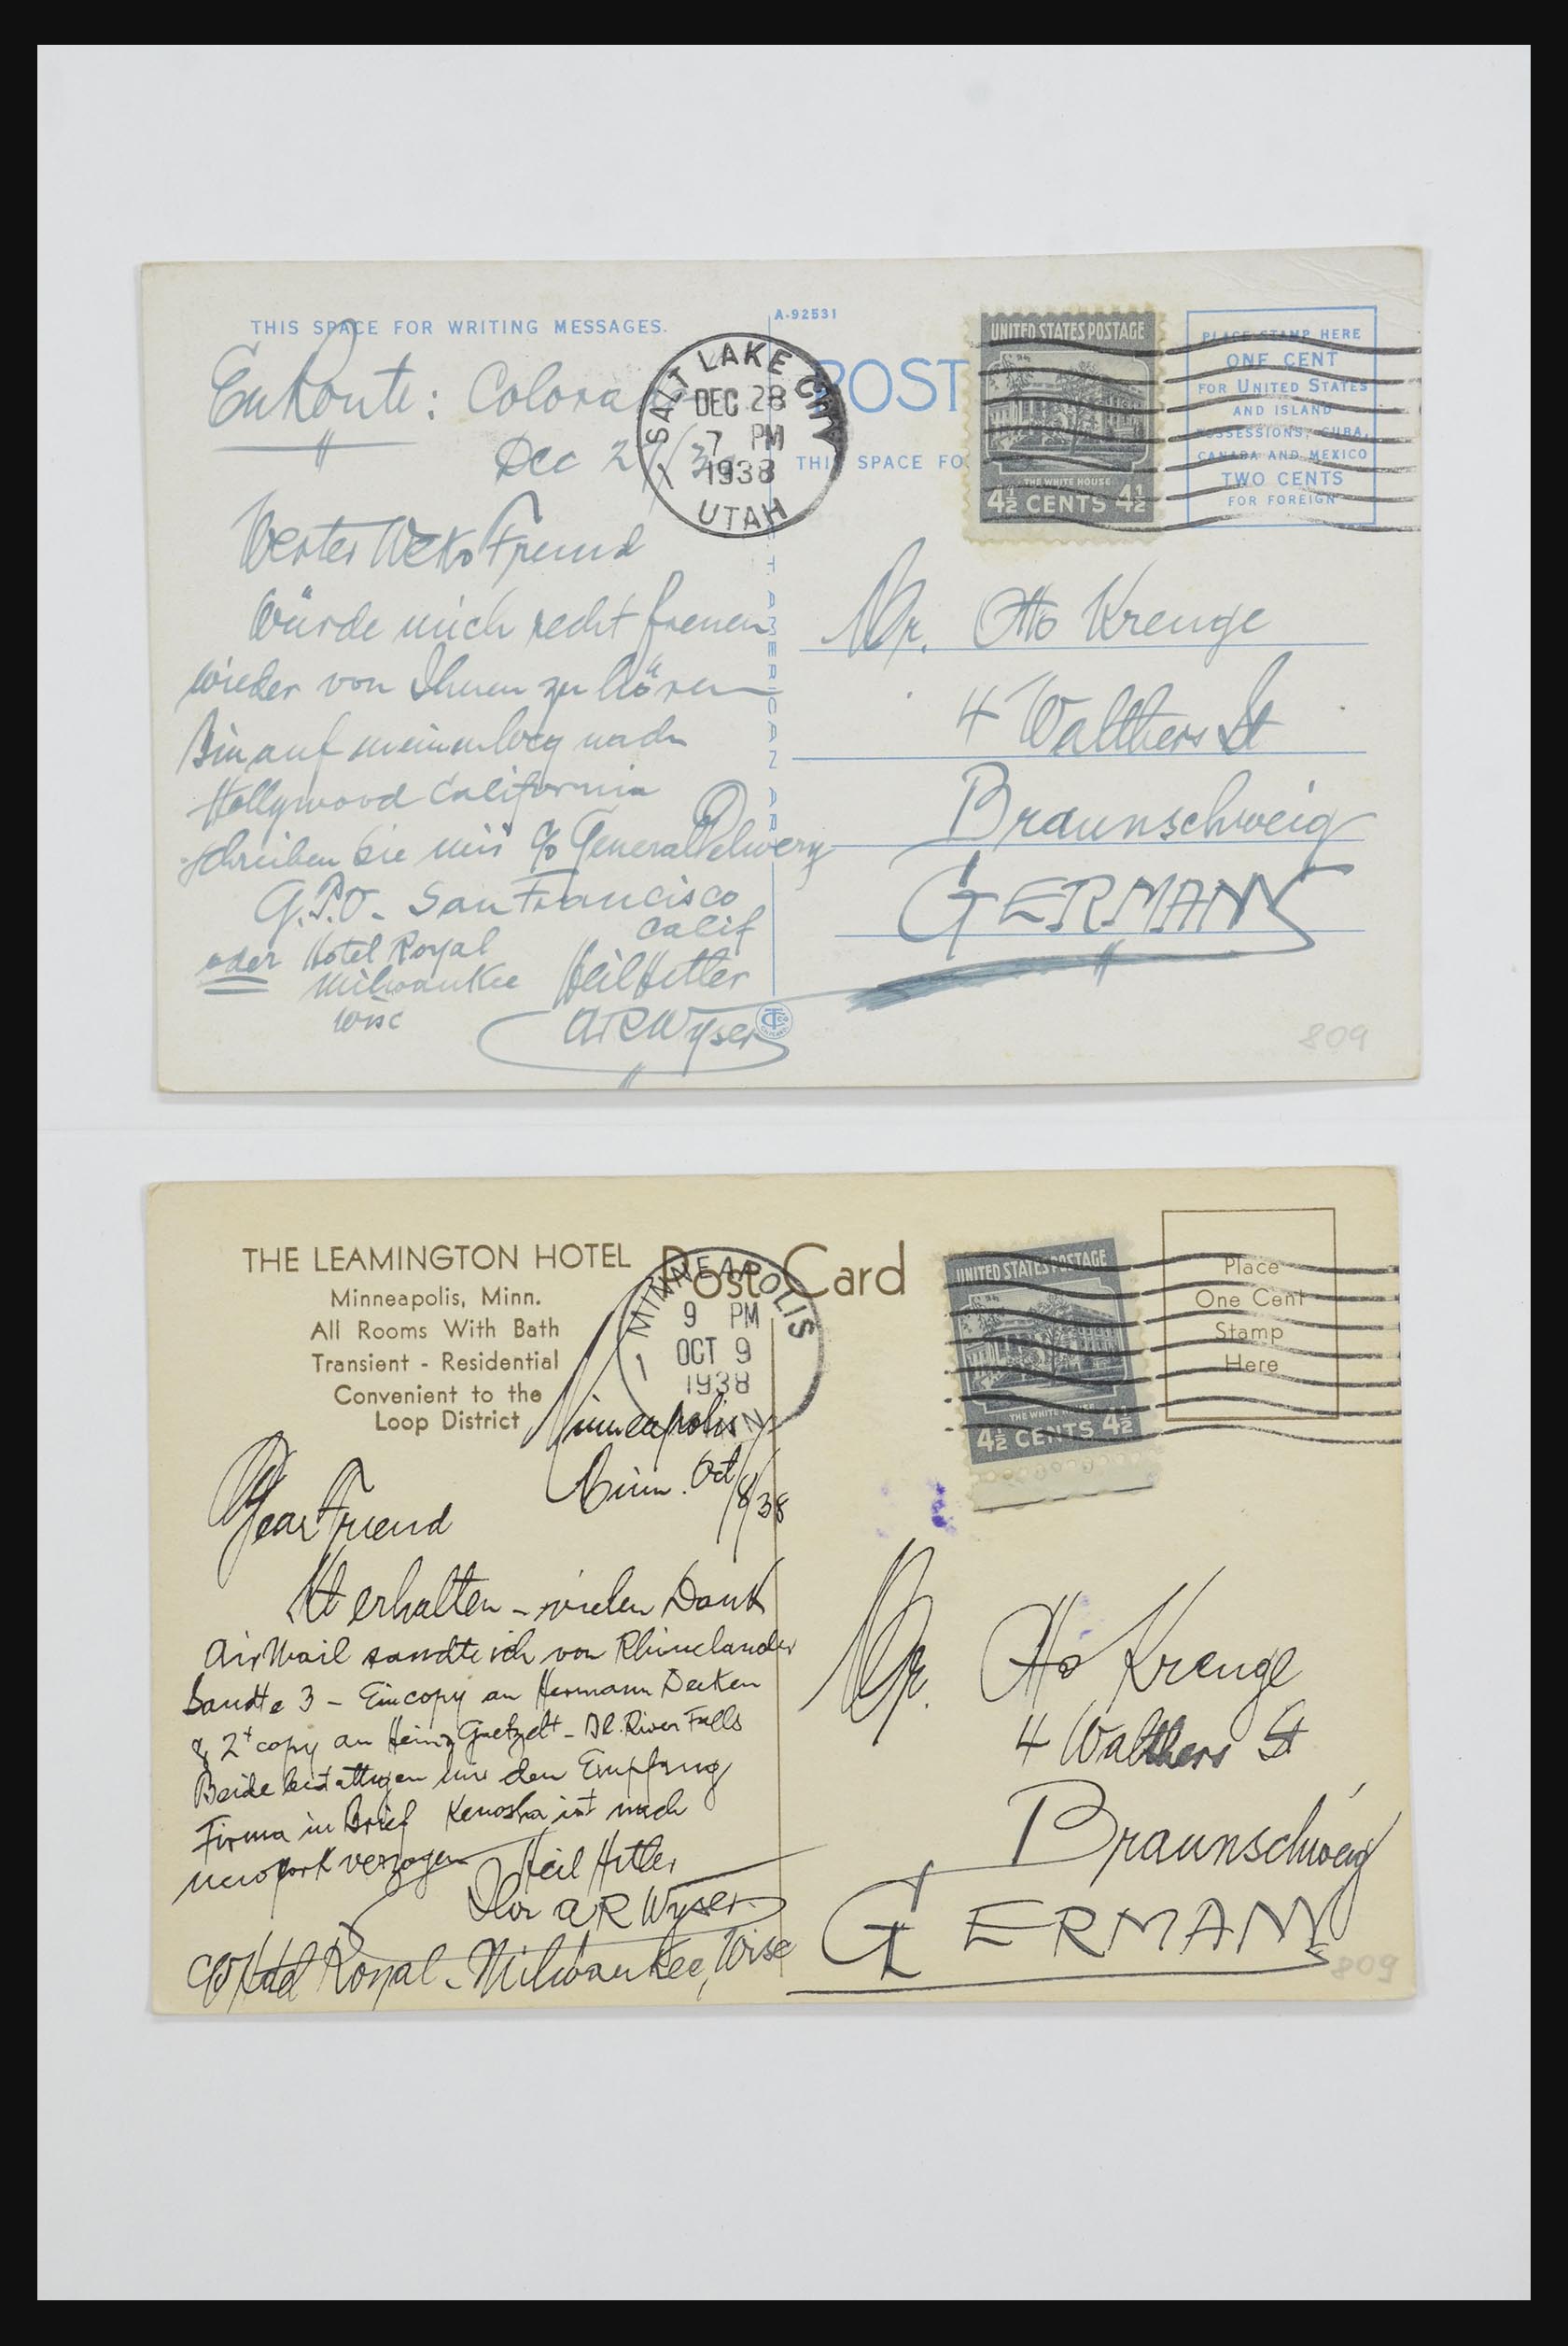 THIS SPACE FOR WRITING MESSAGES.
A-92531
EnRoute: Colora
Dec 27/38
SALT LAKE CITY
DEC 28
7 PM
1938
UTAH
1
POST
THIS SPACE FO
UNITED STATES POSTAGE
THE WHITE HOUSE
4½ CENTS 4½
PLACE STAMP HERE
ONE CENT
FOR UNITED STATES
AND ISLAND
POSSESSIONS, CUBA,
CANADA AND MEXICO
TWO CENTS
FOR FOREIGN
Werter Freund
Würde mich recht freuen
wieder von Ihnen zu hören
Bin auf meinem Weg nach
Hollywood California
schreiben Sie mir c/o General Delivery
G.P.O. San Francisco
Calif
oder Hotel Royal
Milwaukee
Wisc
Heil Hitler
A R Wyser
T. AMERICAN AR
Mr. Otto Krenge
4 Walthers St
Braunschweig
GERMANY
809
THE LEAMINGTON HOTEL
Minneapolis, Minn.
All Rooms With Bath
Transient - Residential
Convenient to the
Loop District
Post Card
MINNEAPOLIS
9 PM
OCT 9
1938
1
UNITED STATES POSTAGE
THE WHITE HOUSE
4½ CENTS 4½
Place
One Cent
Stamp
Here
Minneapolis
Minn. Oct/8/38
Dear Friend
erhalten - vielen Dank
Air Mail sandte ich von Rhinelander
Sandte 3 - Ein copy an Hermann Decken
& 2t copy an Heinz - River Falls
Beide bestättigen mir den Empfang
Firma in Brief Kenosha ist nach
New York verzogen
Heil Hitler
Ihr A R Wyser
c/o Hotel Royal - Milwaukee, Wisc
Mr. Otto Krenge
4 Walthers St
Braunschweig
GERMANY
809